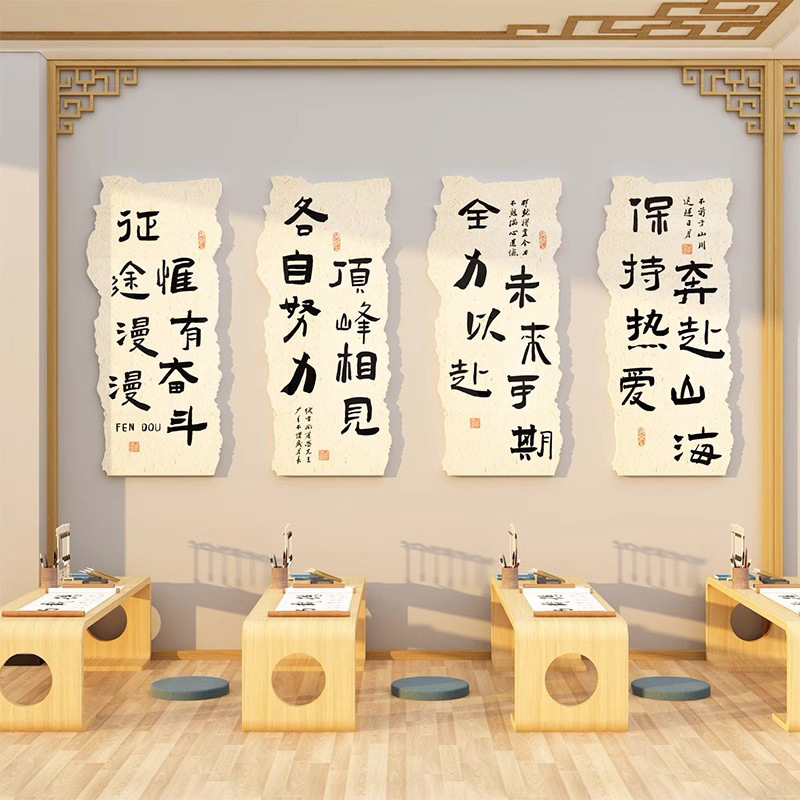 征途漫漫
惟有奋斗
FEN DOU
各自努力
頂峰相見
全力以赴
未来可期
保持热爱
奔赴山海